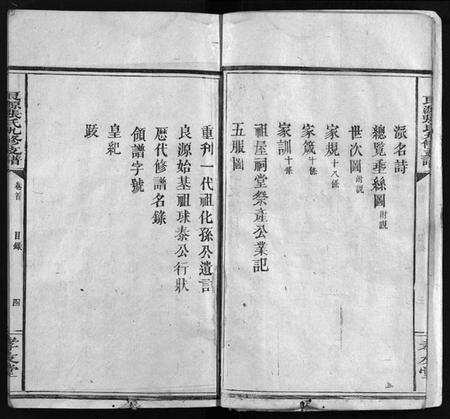 派名詩
總覽垂絲圖 附說
世次圖 附說
家規 十八條
家箴 十條
家訓 十條
祖屋祠堂祭產公業記
五服圖
重刊一代祖化孫公遺言
良源始基祖球泰公行狀
歷代修譜名錄
領譜字號
皇紀
跋
良源張氏九修支譜
卷首
目錄
四
孝友堂